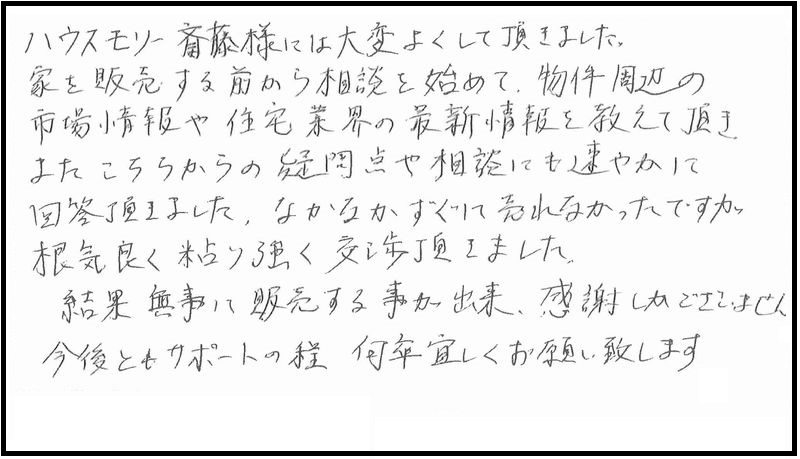 ハウスモリー 斎藤様には大変よくして頂きました。
家を販売する前から相談を始めて、物件周辺の
市場情報や住宅業界の最新情報を教えて頂き
またこちらからの疑問点や相談にも速やかに
回答頂きました。なかなかすぐに売れなかったですが
根気良く粘り強く交渉頂きました。
結果無事に販売する事が出来、感謝しかございません
今後ともサポートの程 何卒宜しくお願い致します